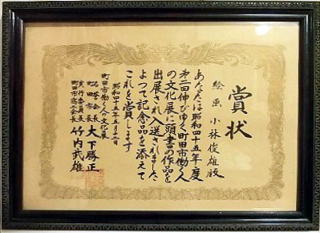 賞状
絵画 小林俊雄殿
あなたは昭和四十五年度
第二回伸びゆく町田市働く人
の文化展に頭書の作品を
出展され入選されました
よつて記念品を添えて
これを賞します
昭和四十五年五月三日
町田市働く人の文化展
町田市長 大下勝正
実行委員長
竹内武雄